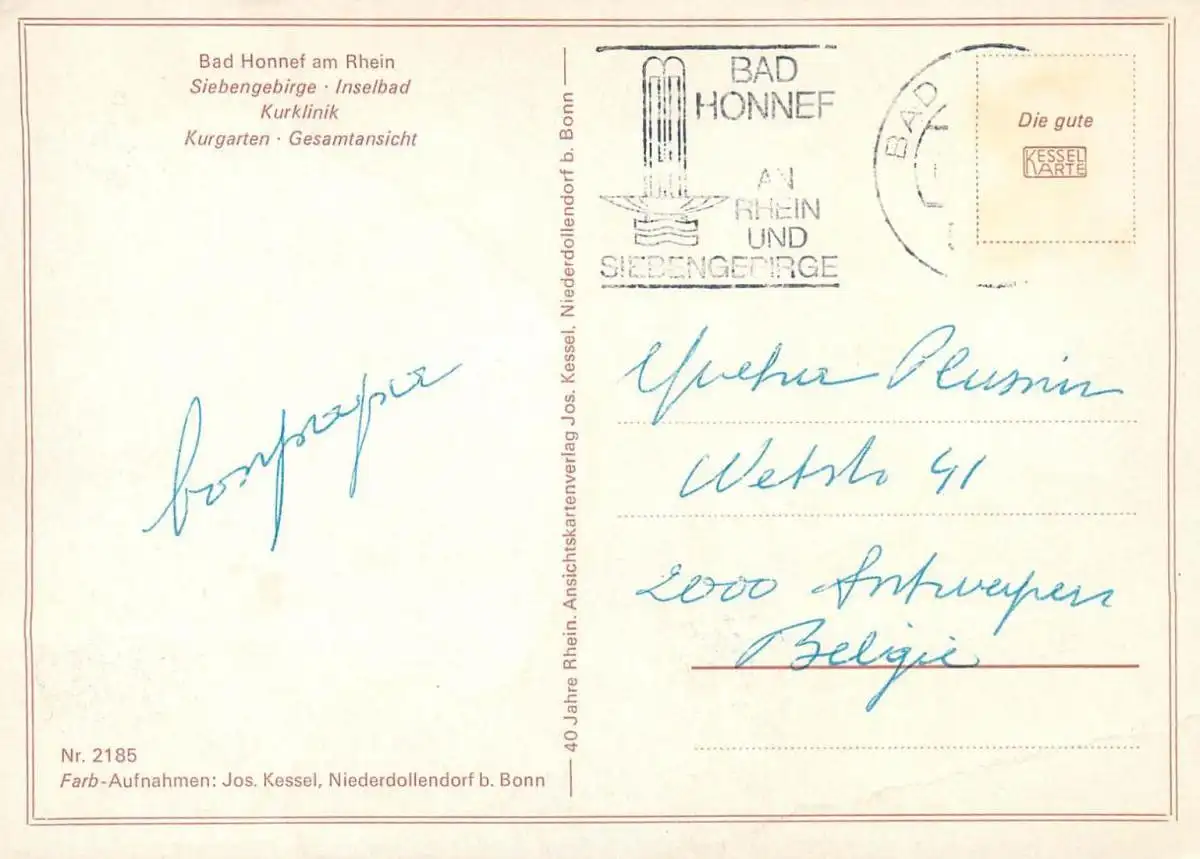 Bad Honnef am Rhein
Siebengebirge · Inselbad
Kurklinik
Kurgarten · Gesamtansicht
Nr. 2185
Farb-Aufnahmen: Jos. Kessel, Niederdollendorf b. Bonn
40 Jahre Rhein. Ansichtskartenverlag Jos. Kessel, Niederdollendorf b. Bonn
BAD
HONNEF
AN
RHEIN
UND
SIEBENGEBIRGE
BAD
Die gute
KESSEL
KARTE
41
2000 Antwerpen
Belgie